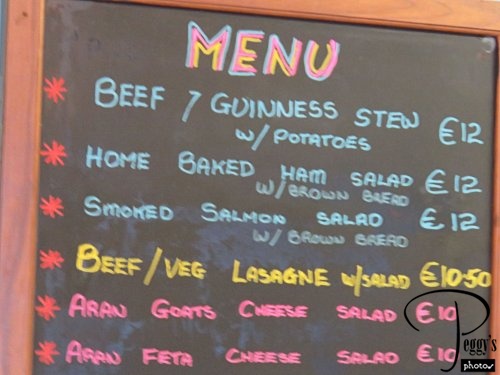 MENU
* BEEF 7 GUINNESS STEW €12
w/POTATOES
* HOME BAKED HAM SALAD €12
W/BROWN BREAD
* SMOKED SALMON SALAD €12
W/BROWN BREAD
* BEEF/VEG LASAGNE w/SALAD €10.50
* ARAN GOATS CHEESE SALAD €10
* ARAN FETA CHEESE SALAD €10
Peggy's
photos